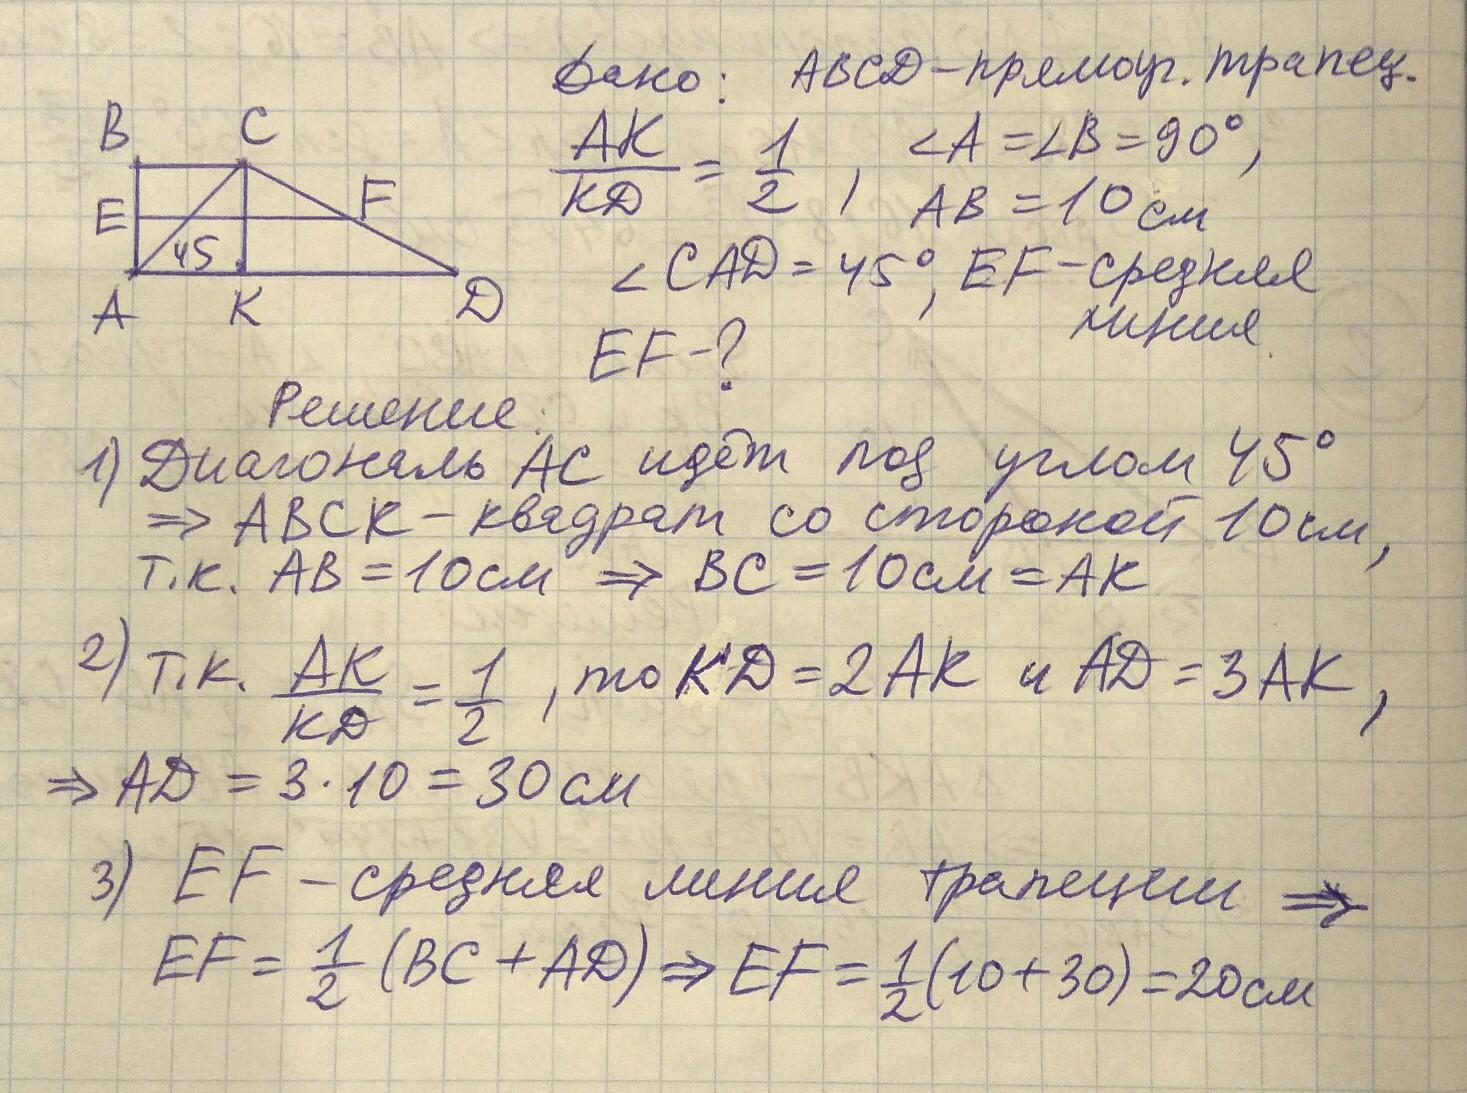 Дано: ABCD – прямоуг. трапец.
AK/KD = 1/2, ∠A = ∠B = 90°,
AB = 10 см
∠CAD = 45°, EF – средняя
линия
EF – ?
B C
E F
45
A K D
Решение:
1) Диагональ AC идёт под углом 45°
⇒ ABCK – квадрат со стороной 10 см,
т.к. AB = 10 см ⇒ BC = 10 см = AK
2) т.к. AK/KD = 1/2, то KD = 2AK и AD = 3AK,
⇒ AD = 3 · 10 = 30 см
3) EF – средняя линия трапеции ⇒
EF = 1/2 (BC + AD) ⇒ EF = 1/2 (10 + 30) = 20 см